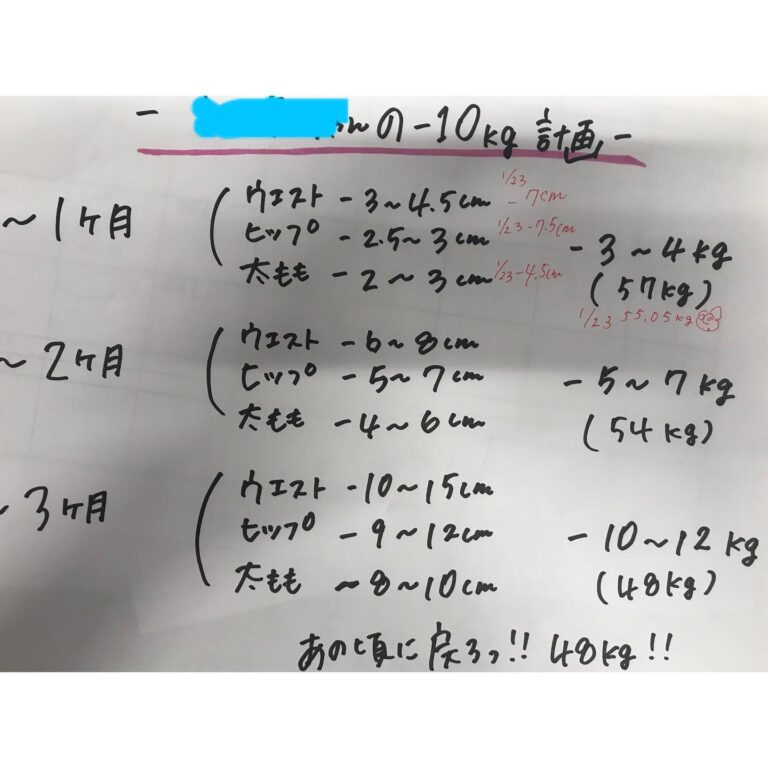 - の-10kg 計画 -
~1ヶ月
ウエスト -3~4.5cm 1/23 -7cm
ヒップ -2.5~3cm 1/23 -7.5cm
太もも -2~3cm 1/23 -4.5cm
-3~4kg
(57kg)
1/23 55.05kg
~2ヶ月
ウエスト -6~8cm
ヒップ -5~7cm
太もも -4~6cm
-5~7kg
(54kg)
~3ヶ月
ウエスト -10~15cm
ヒップ -9~12cm
太もも ~8~10cm
-10~12kg
(48kg)
あの頃に戻ろっ!! 48kg!!